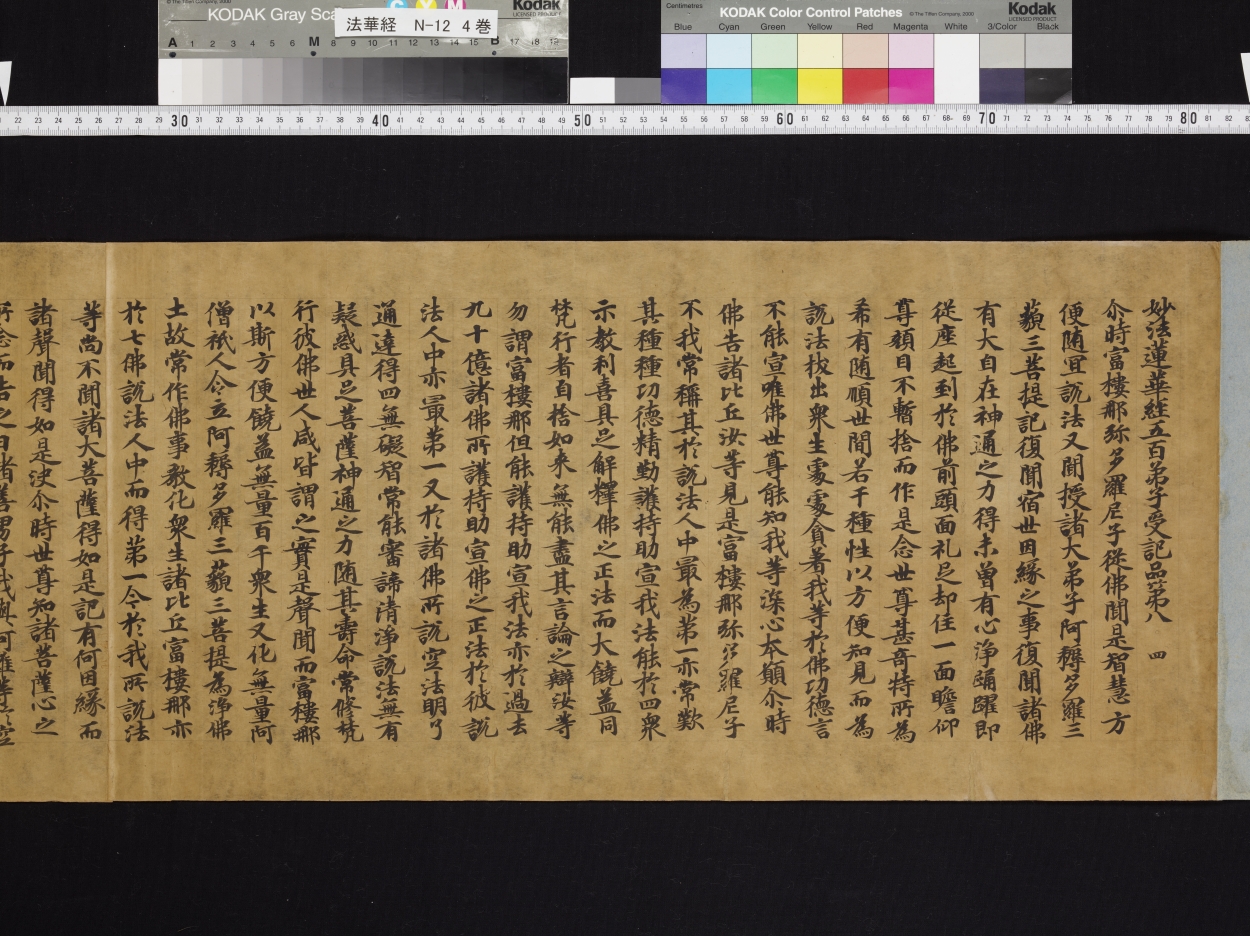 © The Tiffen Company, 2000
KODAK Gray Sca
C Y M
Kodak
LICENSED PRODUCT
法華経 N-12 4巻
A 1 2 3 4 5 6 M 8 9 10 11 12 13 14 15 B 17 18 19
Centimetres
KODAK Color Control Patches
© The Tiffen Company, 2000
Kodak
LICENSED PRODUCT
Blue Cyan Green Yellow Red Magenta White 3/Color Black
22 23 24 25 26 27 28 29 30 31 32 33 34 35 36 37 38 39 40 41 42 43 44 45 46 47 48 49 50 51 52 53 54 55 56 57 58 59 60 61 62 63 64 65 66 67 68 69 70 71 72 73 74 75 76 77 78 79 80 81 82
妙法蓮華経五百弟子受記品第八 四
尒時富樓那弥多羅尼子從佛聞是智慧方
便随宜說法又聞授諸大弟子阿耨多羅三
藐三菩提記復聞宿世因緣之事復聞諸佛
有大自在神通之力得未曽有心淨踊躍即
從座起到於佛前頭面礼足却住一面瞻仰
尊顏目不暫捨而作是念世尊甚奇特所為
希有随順世間若干種性以方便知見而為
說法拔出衆生處處貪著我等於佛功德言
不能宣唯佛世尊能知我等深心本願尒時
佛告諸比丘汝等見是富樓那弥多羅尼子
不我常稱其於說法人中最為第一亦常歎
其種種功德精勤護持助宣我法能於四衆
示教利喜具足解釋佛之正法而大饒益同
梵行者自捨如来無能盡其言論之辯汝等
勿謂富樓那但能護持助宣我法亦於過去
九十億諸佛所護持助宣佛之正法於彼說
法人中亦最第一又於諸佛所說空法明了
通達得四無礙智常能審諦清淨說法無有
疑惑具足菩薩神通之力随其壽命常修梵
行彼佛世人咸皆謂之實是聲聞而富樓那
以斯方便饒益無量百千衆生又化無量阿
僧祇人令立阿耨多羅三藐三菩提為淨佛
土故常作佛事教化衆生諸比丘富樓那亦
於七佛說法人中而得第一今於我所說法
等尚不聞諸大菩薩得如是記有何因緣而
諸聲聞得如是決尒時世尊知諸菩薩心之
所念而告之曰諸善男子我與阿難等於空